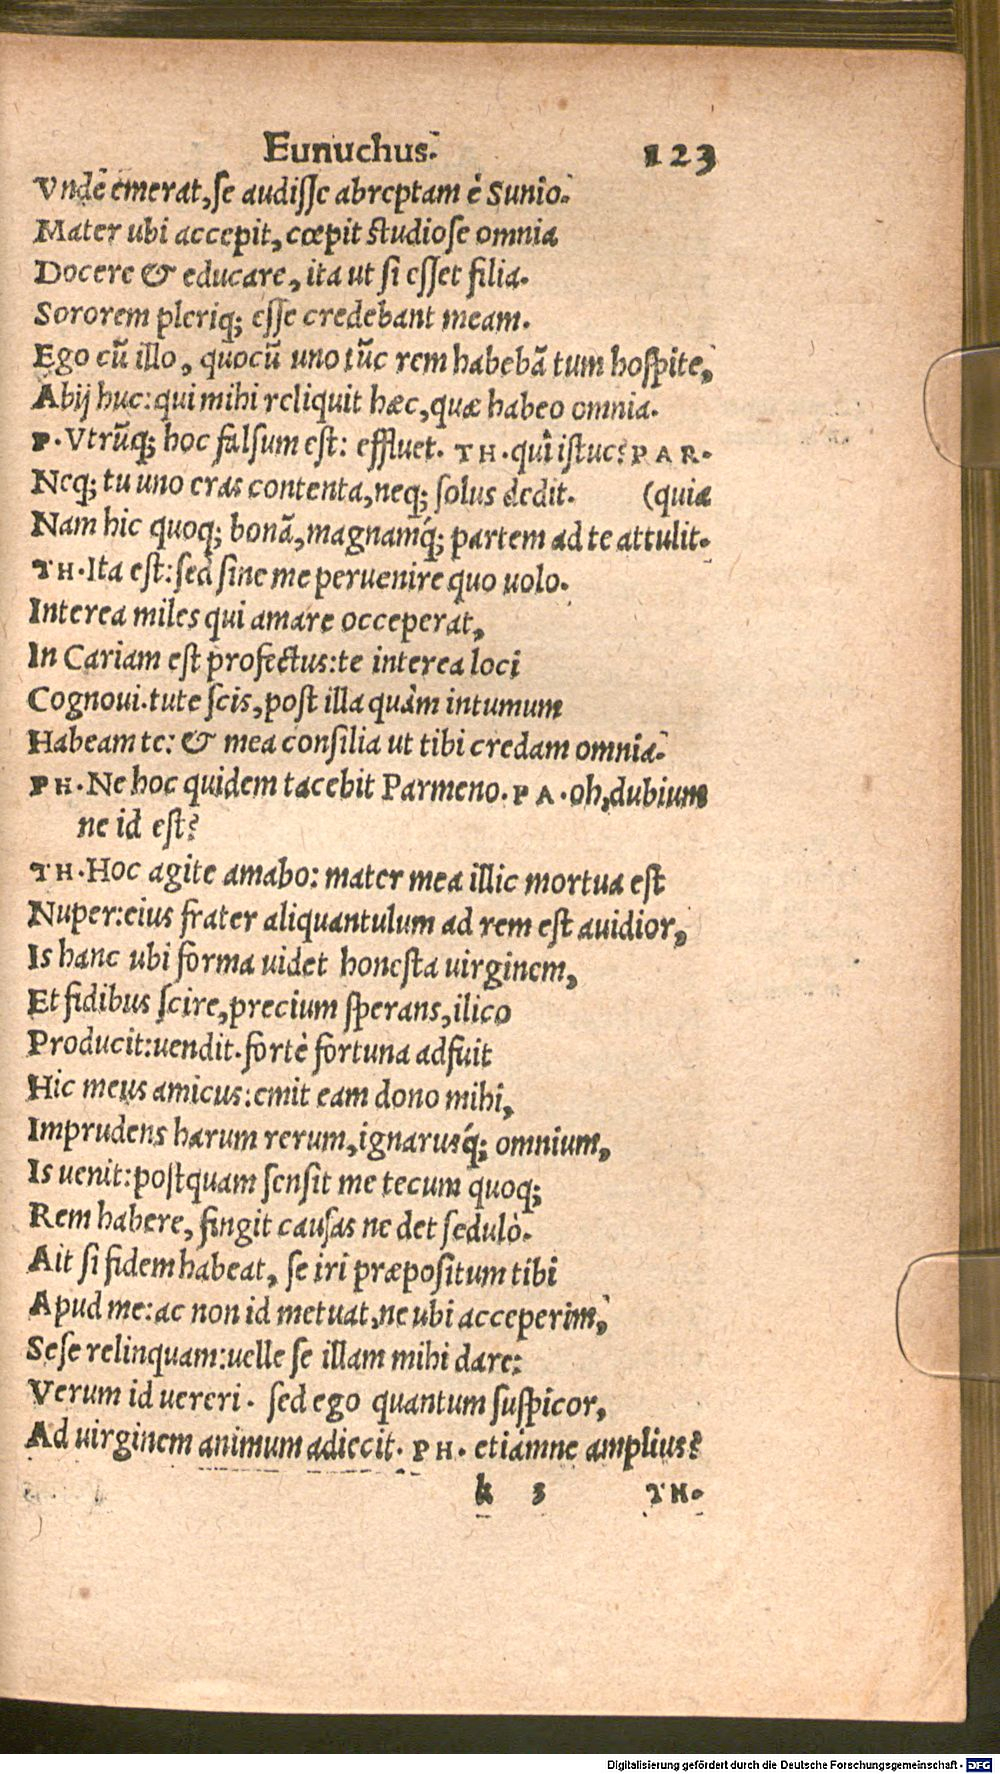 Eunuchus. 123
Vnde emerat, se audisse abreptam è Sunio.
Mater ubi accepit, cœpit studiose omnia
Docere & educare, ita ut si esset filia.
Sororem pleriq; esse credebant meam.
Ego cũ illo, quocũ uno tũc rem habebã tum hospite,
Abij huc: qui mihi reliquit hæc, quæ habeo omnia.
P. Vtrũq; hoc falsum est: effluet. TH. quî istuc? PAR.
Neq; tu uno eras contenta, neq; solus dedit. (quia
Nam hic quoq; bonã, magnamq́; partem ad te attulit.
TH. Ita est: sed sine me peruenire quo uolo.
Interea miles qui amare occeperat,
In Cariam est profectus: te interea loci
Cognoui. tute scis, post illa quàm intumum
Habeam te: & mea consilia ut tibi credam omnia.
PH. Ne hoc quidem tacebit Parmeno. PA. oh, dubium
ne id est?
TH. Hoc agite amabo: mater mea illic mortua est
Nuper: eius frater aliquantulum ad rem est auidior,
Is hanc ubi forma uidet honesta uirginem,
Et fidibus scire, precium sperans, ilico
Producit: uendit. fortè fortuna adfuit
Hic meus amicus: emit eam dono mihi,
Imprudens harum rerum, ignarusq́; omnium,
Is uenit: postquam sensit me tecum quoq;
Rem habere, fingit causas ne det sedulò.
Ait si fidem habeat, se iri præpositum tibi
Apud me: ac non id metuat, ne ubi acceperim,
Sese relinquam: uelle se illam mihi dare:
Verum id uereri. sed ego quantum suspicor,
Ad uirginem animum adiecit. PH. etiámne amplius?
k 3 TH.
Digitalisierung gefördert durch die Deutsche Forschungsgemeinschaft - DFG